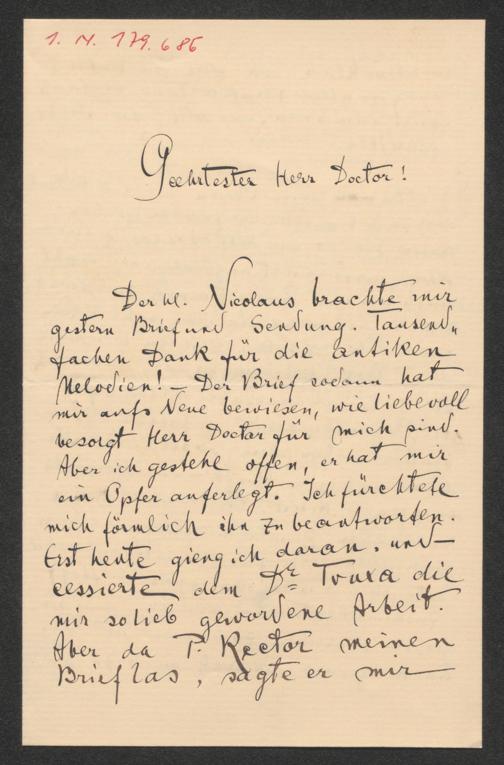 I. N. 179.686
Geehrtester Herr Doctor!
Der hl. Nicolaus brachte mir
gestern Brief und Sendung. Tausend„
fachen Dank für die antiken
Melodien! – Der Brief sodann hat
mir aufs Neue bewiesen, wie liebevoll
besorgt Herr Doctor für mich sind.
Aber ich gestehe offen, er hat mir
ein Opfer auferlegt. Ich fürchtete
mich förmlich ihn zu beantworten.
Erst heute gieng ich daran, und
cessierte dem Dr. Truxa die
mir so lieb gewordene Arbeit.
Aber da P. Rector meinen
Brief las, sagte er mir